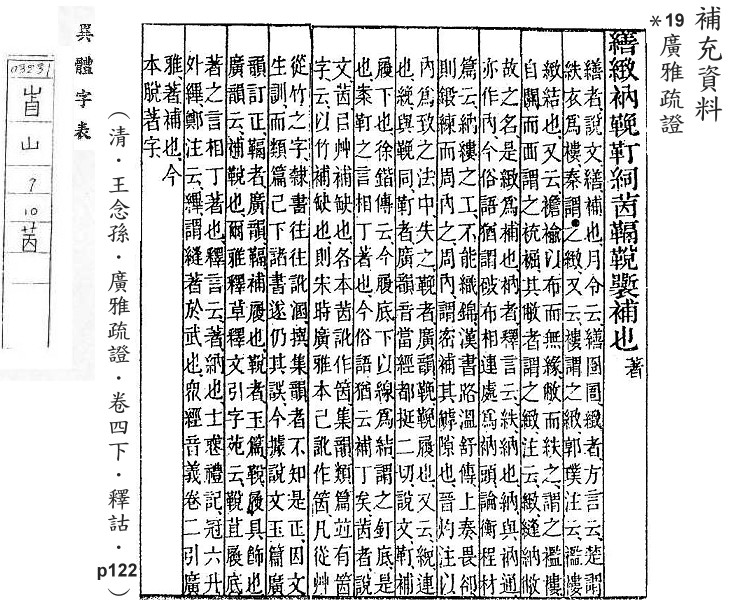 補充資料
*19廣雅疏證
繕緻衲鞔靪絧茵鞨鞔褩補也著
繕者說文繕補也月令云繕囹圄緻者方言云楚謂
紩衣爲褸秦謂之緻又云褸謂之緻郭璞注云襤褸
緻結也又云襜褕以布而無緣敝而紩之謂之襤褸
自關而西謂之其敝者謂之緻注云緻縫納敝
故之名是緻爲補也衲者釋言云紩納也納與衲通
亦作內今俗語猶謂破布相連處爲衲頭論衡程材
篇云納縷之工不能織錦漢書路溫舒傳上奏畏卻
則鍛練而周內之周內謂密補其罅隙也晉灼注以
內爲致之法中失之鞔者廣韻鞔鞔履也又云統連
也統與鞔同靪者廣韻音當經都挺二切說文靪補
履下也徐鍇傳云今履底下以線爲結謂之釘底是
也案靪之言相丁著也今俗語猶云補丁矣茵者說
文茵㠯艸補缺也各本茵訛作箇集韻類篇竝有箇
字云以竹補缺也則宋時廣雅本已訛作箇凡從艸
從竹之字隸書往往訛溷撰集韻者不知是正因文
生訓而類篇已下諸書遂仍其誤今據說文玉篇廣
韻訂正鞨者廣韻鞨補履也鞔者玉篇鞔履具飾也
廣韻云補鞔也爾雅釋草釋文引字苑云鞔苴屐底
著之言相丁著也釋言云著納也士喪禮記冠六升
外縪鄭注云縪謂縫著於武也眾經音義卷二引廣
雅著補也今
本脫著字
（清．王念孫．廣雅疏證．卷四下．釋詁．p122）
異體字表
03231
山
9
10
茵